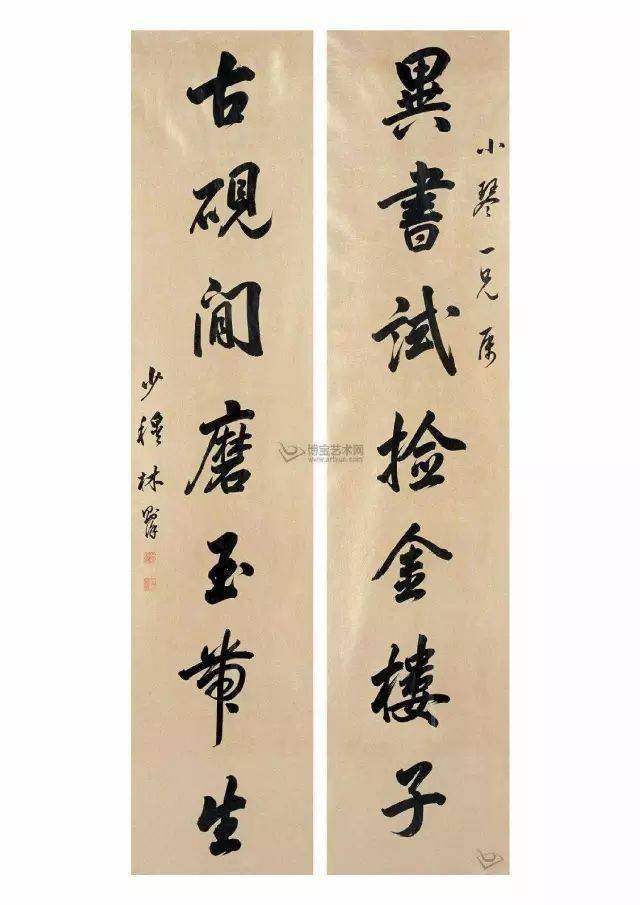 小琴一兄属
異書試撿金樓子
古硯閒磨玉帶生
少穆林則徐
博宝艺术网
www.artxun.com